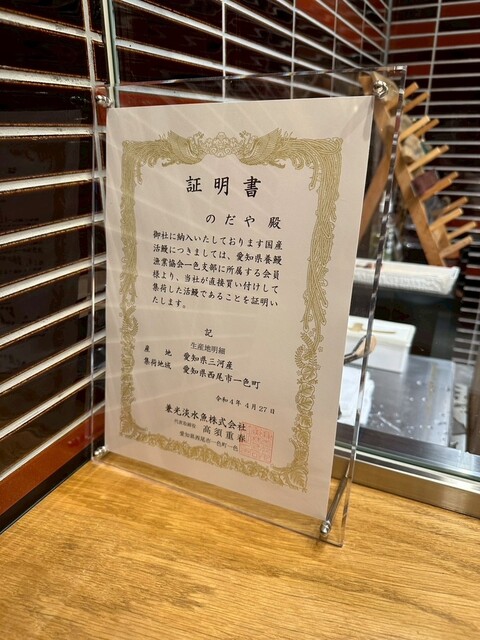 証明書
のだや 殿
御社に納入いたしております国産
活鰻につきましては、愛知県養鰻
漁業協会一色支部に所属する会員
様より、当社が直接買い付けして
集荷した活鰻であることを証明い
たします。
記
生産地明細
産地 愛知県三河産
集荷地域 愛知県西尾市一色町
令和4年4月27日
兼光淡水魚株式会社
代表取締役 高須重春
愛知県西尾市一色町一色